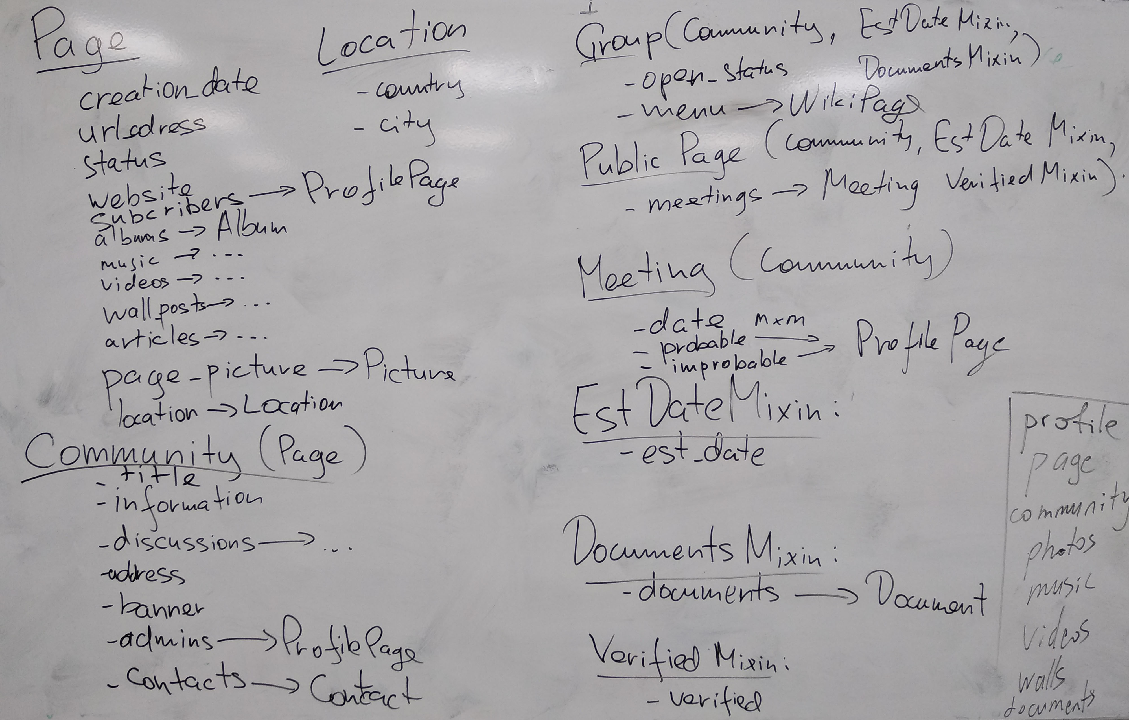 Page
creation_date
url_adress
status
website
subcribers → ProfilePage
albums → Album
music → ...
videos → ...
wallposts → ...
articles → ...
page_picture → Picture
location → Location
Location
- country
- city
Community (Page)
- title
- information
- discussions → ...
- address
- banner
- admins → ProfilePage
- contacts → Contact
Group (Community, EstDateMixin,
DocumentsMixin)
- open_status
- menu → WikiPage
Public Page (Community, EstDate Mixin,
VerifiedMixin).
- meetings → Meeting
Meeting (Community)
- date
- probable m×m →
- improbable → ProfilePage
EstDateMixin:
- est_date
Documents Mixin:
- documents → Document
Verified Mixin:
- verified
profile
page
community
photos
music
videos
walls
documents